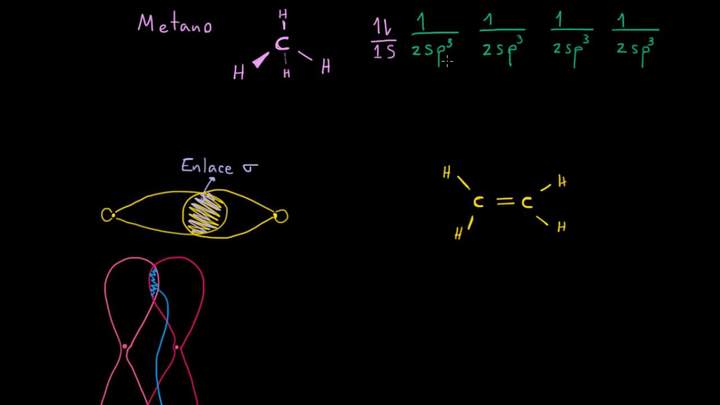 Metano
H
C
H H H
1s 2sp³ 2sp³ 2sp³ 2sp³
Enlace σ
H H
C = C
H H